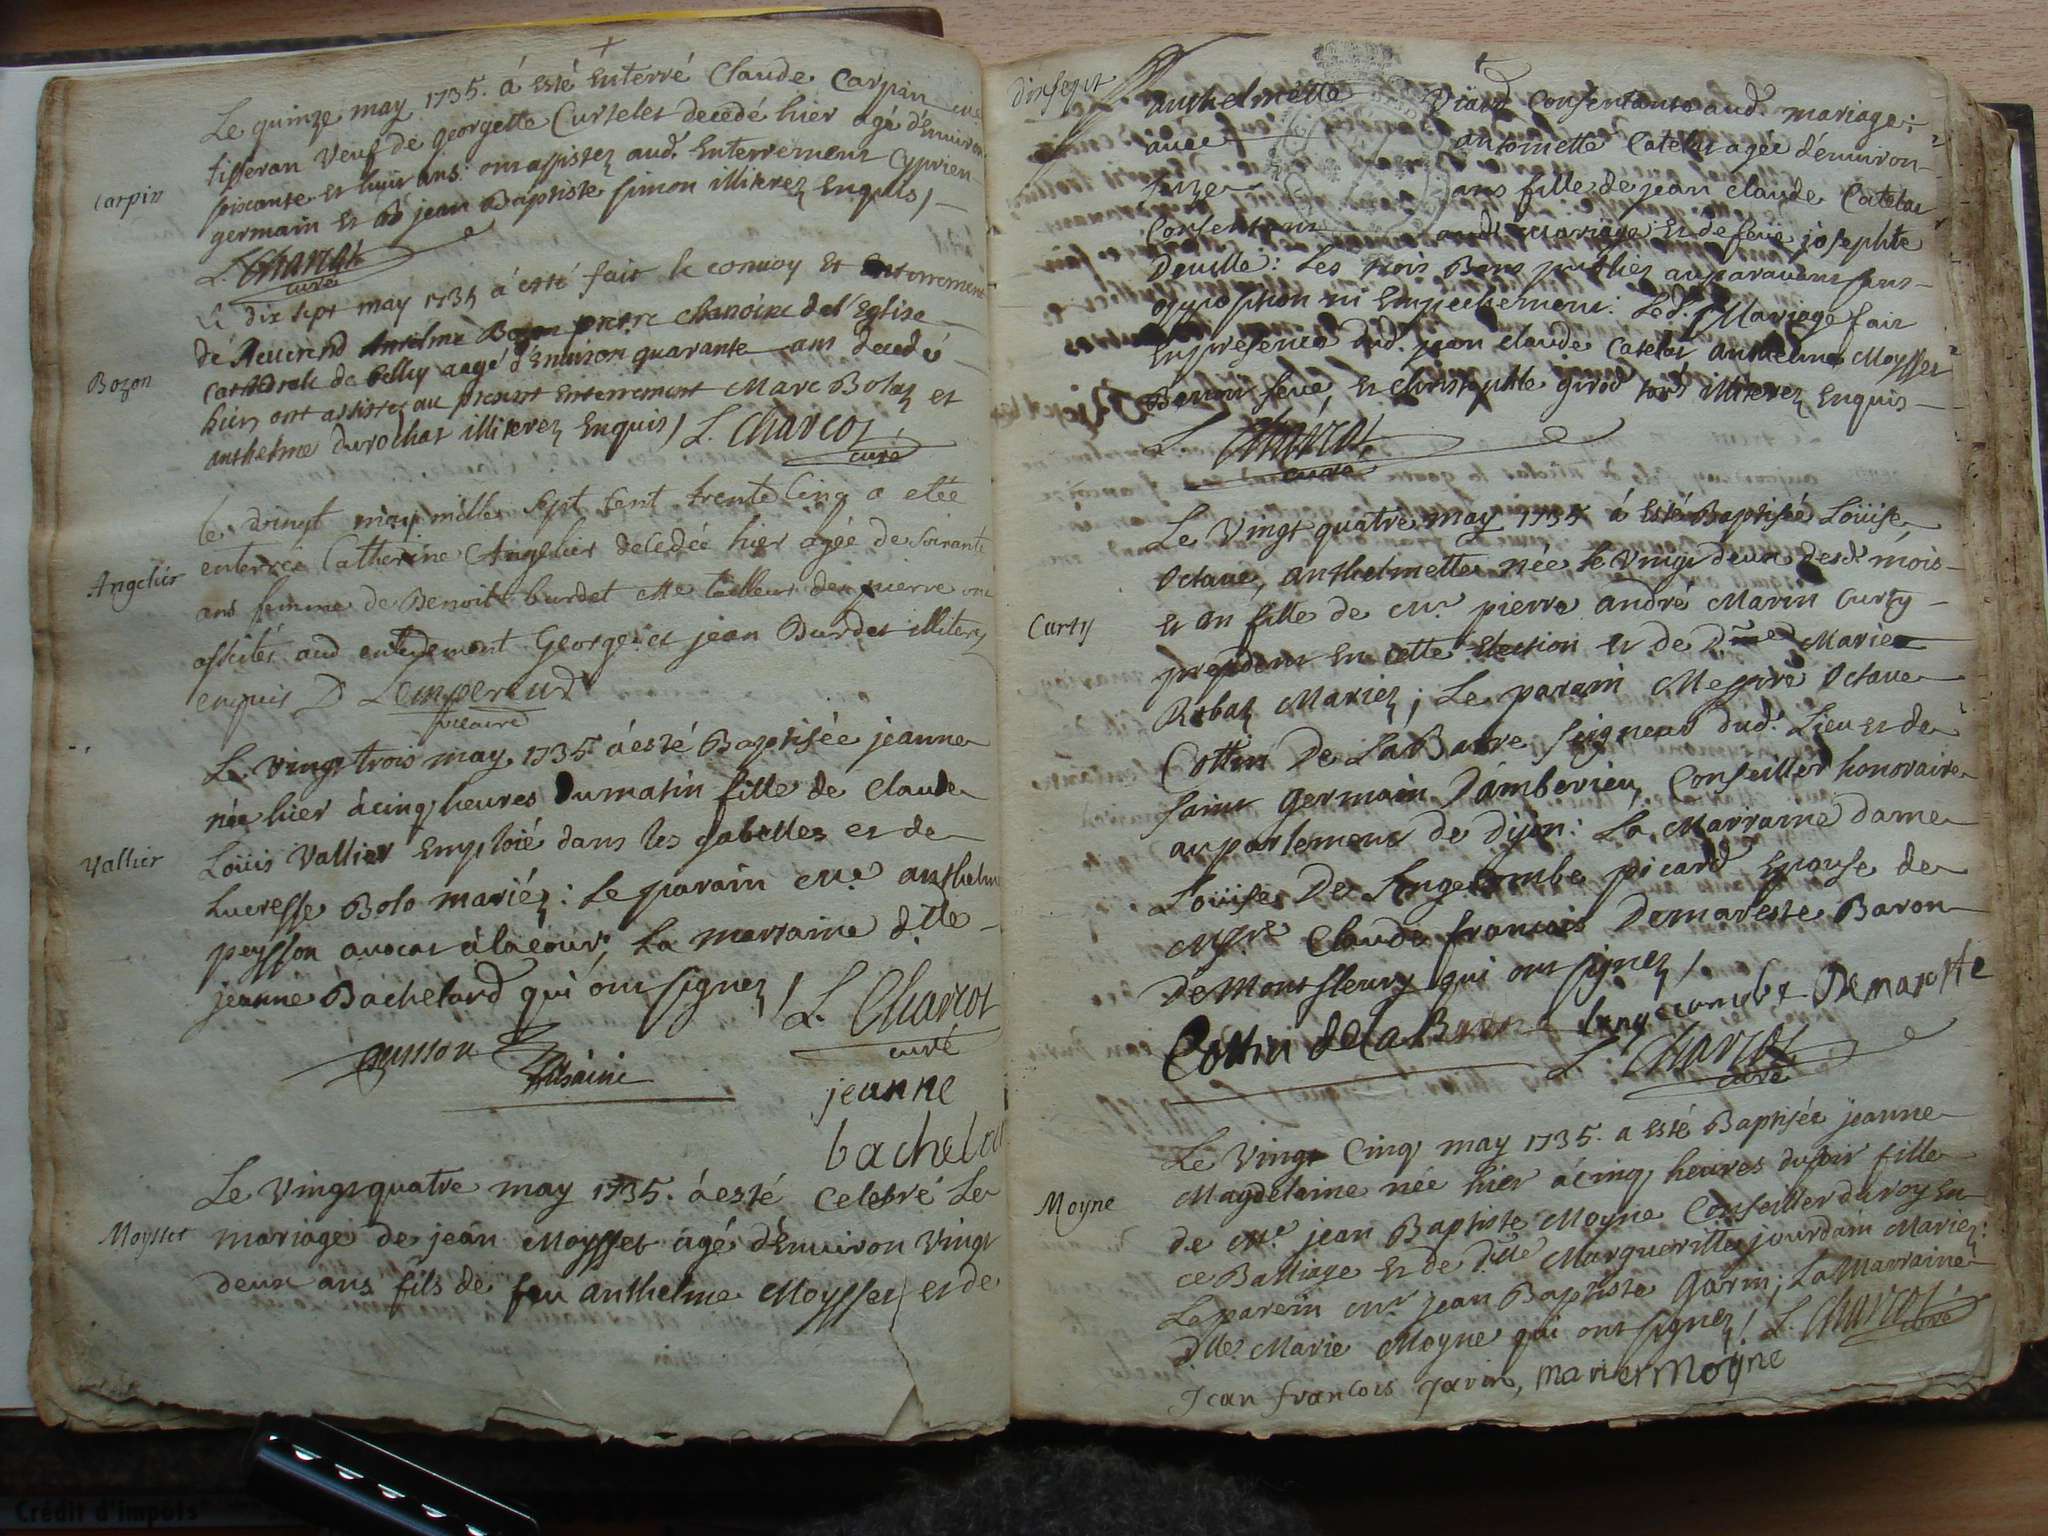 Le quinze may 1735. á esté Enterré Claude Carpin me
tisseran Veuf de georgette Curtelet decedé hier agé d'Environ
soixante et huit ans: ont assistez aud. Enterrement Cyprien
germain et jean Baptiste Simon illiterez Enquis /
Carpin
L. Charcot
curé
Le dix sept may 1735 á esté fait le convoy et Enterrement
de Reverend Anselme Bozon prestre chanoine de l'Eglise
Cathedrale de Belley aagé d'Environ quarante ans decedé
Bozon
hier, ont assistez au present Enterrement Marc Bolaz et
anthelme durochat illiterez Enquis / L. Charcot
curé
le vingt may mille sept cent trente cinq a etée
enterrée Catherine Angelier decedée hier agée de soixante
Angelier
ans femme de Benoit burdet Me tailleur de pierre ont
assistés aud enterrement George et jean Burdet illiterez
enquis D Lempereur
vicaire
Le vingt trois may 1735 á esté Baptisée jeanne
née hier á cinq heures du matin fille de Claude
Vallier
Loüis Vallier Emploïé dans les gabelles et de
Lucresse Bolo mariéz: Le parain Me. anthelme
peysson avocat á la cour, La marraine d.lle
jeanne Bachelard qui ont signez / L. Charcot
curé
peysson
jeanne
bachelard
Le Vingt quatre may 1735. á esté Celebré Le
Moysset
mariage de jean Moysset agé d'Environ Vingt
deux ans fils de feu anthelme Moysset et de
dix sept
anthelmette Viard Consentante aud. mariage;
avec antoinette Catelat agée d'environ
seize ans fille de jean claude Catelat
Consentant aud. Mariage et de feüe josephte
Deville: Les trois Bans publiez auparavant sans
opposition ni Empechement: Led. Mariage fait
En presence dud. jean claude Catelat Anthelme Moysset
Benoit feve, et Christophle girod tous illiterez Enquis
L. Charcot
curé
Le Vingt quatre may 1735 á esté Baptisée Loüise,
Octave, anthelmette née le vingt deux desd. mois
Curty
et an fille de Mr. pierre andré Marin Curty
president En cette Election et de Dme Marie
Rubat Mariez; Le parain Messire Octave
Cottin De La Barre Seigneur dud. Lieu et de
Saint germain D'amberieu, Conseiller honoraire
au parlement de Dijon: La Marraine dame
Loüise De Langecombe picard Epouse de
Msre Claude françois Demareste Baron
De Montfleury qui ont signez /
Cottin de la Barre Langecombe Demareste
L. Charcot
curé
Le Vingt Cinq may 1735. a esté Baptisée jeanne
Magdelaine née hier á cinq heures du soir fille
Moyne
de Me. jean Baptiste Moyne Conseiller du roy En
ce Balliage et de Dlle Marguerite jourdain Mariez:
Le parein Mr. jean Baptiste Garin; La Marraine
dlle. Marie Moyne qui ont signez / L. Charcot
curé
Jean françois garin, marie Moyne
Crédit d'impôts